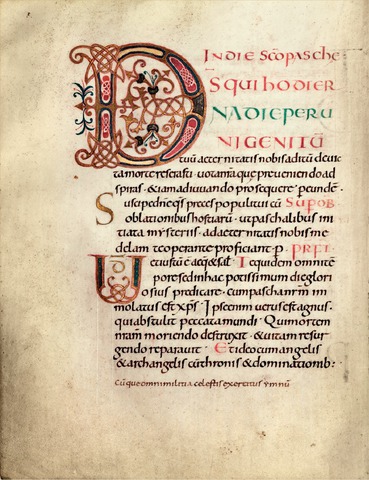 IN DIE SCO PASCHE
DS QUI HODIER
NA DIE PER U
NIGENITŪ
tuū aeternitatis nobis aditū devic
ta morte reserasti · vota nr̄a que preveniendo ad
spiras · &iam adiuvando prosequere · p eundē ·
Suscipe dn̄e q̄s preces populi tui cū SUP OB
oblationibus hostiarū · ut paschalibus ini
tiata mysteriis · ad aeternitatis nobis me
delam te operante proficiant · p · PREF
Vere
Te quidem omni tē
pore sed in hac potissimum die glori
osius predicare · cum pascha nr̄m im
molatus est xp̄s · Ipse enim verus est agnus ·
qui abstulit peccata mundi · Qui mortem
nr̄am moriendo destruxit · & vitam resur
gendo reparavit · Et ideo cum angelis
& archangelis cū thronis & dominationib:
Cūque omni militia celestis exercitus ymnū